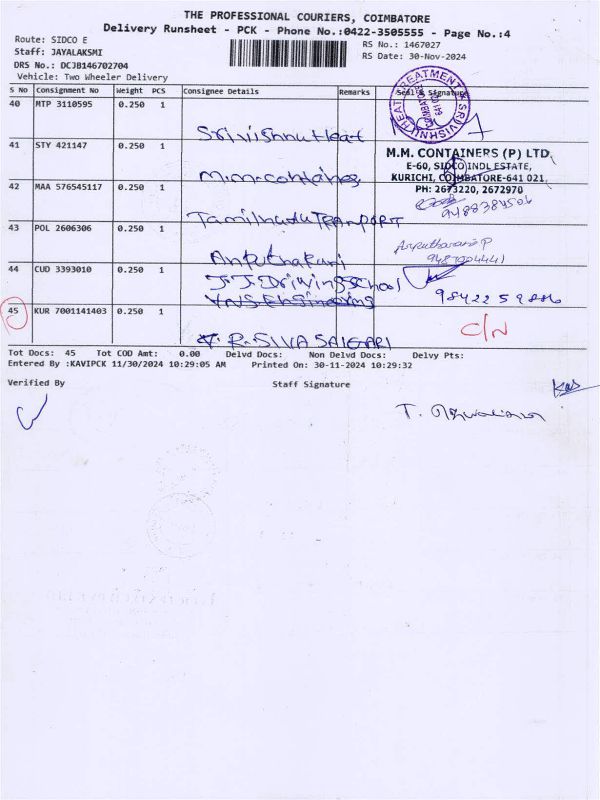 THE PROFESSIONAL COURIERS, COIMBATORE
Delivery Runsheet - PCK - Phone No.:0422-3505555 - Page No.:4
Route: SIDCO E
RS No.: 1467027
Staff: JAYALAKSMI
RS Date: 30-Nov-2024
DRS No.: DCJB146702704
Vehicle: Two Wheeler Delivery
S No Consignment No Weight PCS Consignee Details Remarks Seal & Signature
40 MTP 3110595 0.250 1
Srivishnu Heat
HEAT TREATMENT
SRI VISHNU
641 021
41 STY 421147 0.250 1
M.M. Containers
M.M. CONTAINERS (P) LTD.
E-60, SIDCO INDL ESTATE,
KURICHI, COIMBATORE-641 021.
PH: 2673220, 2672970
42 MAA 576545117 0.250 1
Tamilnadu TRANPORT
9488384506
43 POL 2606306 0.250 1
44 CUD 3393010 0.250 1
J.J. Driving School
VNS Engineering
9842259886
45 KUR 7001141403 0.250 1
C/N
Tot Docs: 45 Tot COD Amt: 0.00 Delvd Docs: Non Delvd Docs: Delvy Pts:
Entered By :KAVIPCK 11/30/2024 10:29:05 AM Printed On: 30-11-2024 10:29:32
Verified By Staff Signature